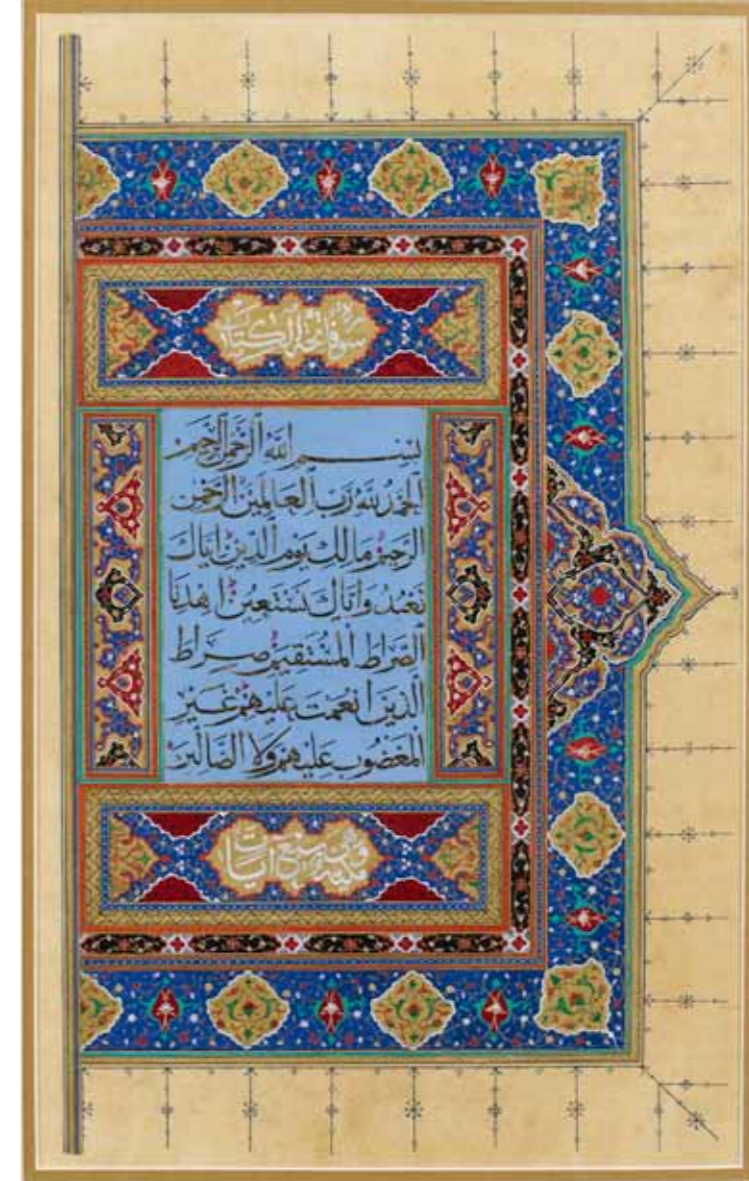 سورة فاتحة الكتاب
بسم الله الرحمن الرحيم
الحمد لله رب العالمين الرحمن
الرحيم مالك يوم الدين اياك
نعبد واياك نستعين اهدنا
الصراط المستقيم صراط
الذين انعمت عليهم غير
المغضوب عليهم ولا الضالين
مكية وهي سبع آيات